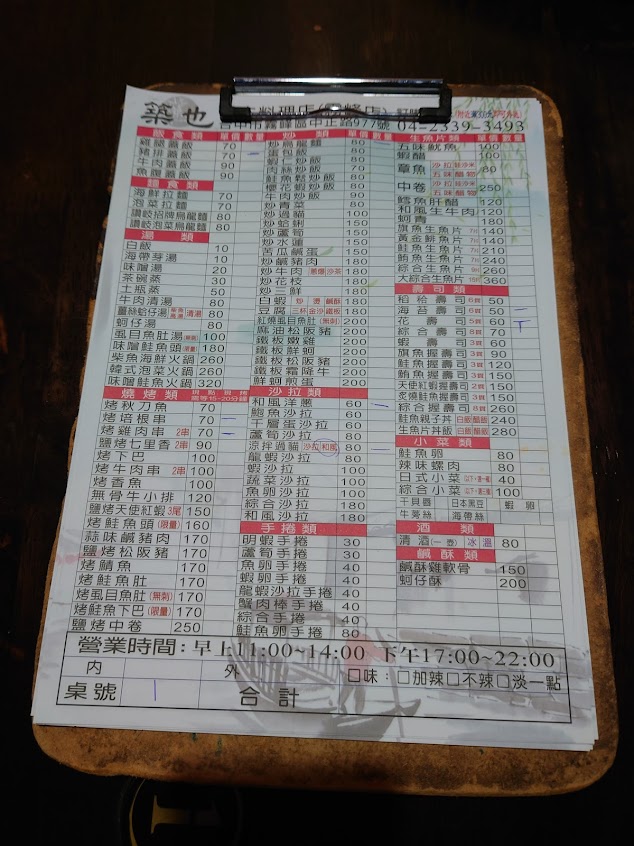 築也
台中市霧峰區中正路977號 04-2339-3493
飯食類 單價 數量
雞腿蓋飯 70
豬排蓋飯 70
牛肉蓋飯 90
魚腹蓋飯 90
麵食類
海鮮拉麵 70
泡菜拉麵 70
讚岐招牌烏龍麵 80
讚岐泡菜烏龍麵 80
湯類
白飯 10
海帶芽湯 10
味噌湯 20
茶碗蒸 30
土瓶蒸 50
牛肉清湯 80
薑絲蛤仔湯 清湯 80
蚵仔湯 80
虱目魚肚湯 100
味噌鮭魚頭(限量) 180
柴魚海鮮火鍋 260
韓式泡菜火鍋 260
味噌鮭魚火鍋 320
燒烤類
烤秋刀魚 70
烤培根串 70
烤雞肉串 2串 70
鹽烤七里香 2串 90
烤下巴 100
烤牛肉串 2串 100
烤香魚 100
無骨牛小排 120
鹽烤天使紅蝦 3尾 150
烤鮭魚頭(限量) 160
蒜味鹹豬肉 170
鹽烤松阪豬 170
烤鯖魚 170
烤鮭魚肚 170
烤虱目魚肚(無刺) 170
烤鮭魚下巴(限量) 170
鹽烤中卷 250
炒類 單價 數量
炒烏龍麵 80
蛋包飯 80
蝦仁炒飯 80
肉絲炒飯 80
鮭魚鬆炒飯 80
櫻花蝦炒飯 80
牛肉炒飯 90
炒青菜 80
炒過貓 100
炒蛤蜊 150
炒蘆筍 150
炒水蓮 150
苦瓜鹹蛋 150
炒鹹豬肉 180
炒牛肉 蔥爆 沙茶 180
炒花枝 180
炒三鮮 180
白蝦 炒 燙 鹹酥 180
豆腐 三杯 金沙 鐵板 180
紅燒虱目魚肚(無刺) 200
麻油松阪豬 200
鐵板嫩雞 200
鐵板鮮蚵 200
鐵板松阪豬 200
鐵板霜降牛 200
鮮蚵煎蛋 200
沙拉類
和風洋蔥 60
鮑魚沙拉 60
千層蛋沙拉 60
蘆筍沙拉 80
涼拌過貓 沙拉 和風 80
龍蝦沙拉 80
蝦沙拉 100
蔬菜沙拉 100
魚卵沙拉 100
綜合沙拉 180
和風沙拉 180
手捲類
明蝦手捲 30
蘆筍手捲 30
魚卵手捲 40
蝦卵手捲 40
龍蝦沙拉手捲 40
蟹肉棒手捲 40
綜合手捲 40
鮭魚卵手捲 80
生魚片類 單價 數量
五味魷魚 100
蝦醋 100
章魚 沙拉 哇沙米 五味 醋物 80
中卷 沙拉 哇沙米 五味 醋物 250
鱈魚肝醋 120
和風生牛肉 120
蚵青 180
旗魚生魚片 140
黃金鯡魚片 140
鮭魚生魚片 210
鮪魚生魚片 240
綜合生魚片 260
大綜合生魚片 360
壽司類
稻禾壽司 50
海苔壽司 50
花壽司 60
綜合壽司 60
蝦壽司 60
旗魚握壽司 90
鮭魚握壽司 120
鮪魚握壽司 150
天使紅蝦握壽司 150
炙燒鮭魚握壽司 150
綜合握壽司 260
鮭魚親子丼 白飯 醋飯 240
生魚片丼飯 白飯 醋飯 280
小菜類
鮭魚卵 80
辣味螺肉 80
日式小菜 40
綜合小菜 100
干貝唇 日本黑豆 蝦卵
牛蒡絲 海帶絲
酒類
清酒(一壺) 冰 溫 80
鹹酥類
鹹酥雞軟骨 150
蚵仔酥 200
營業時間：早上11:00~14:00 下午17:00~22:00
內 外 口味：口加辣口不辣口淡一點
桌號 1 合計